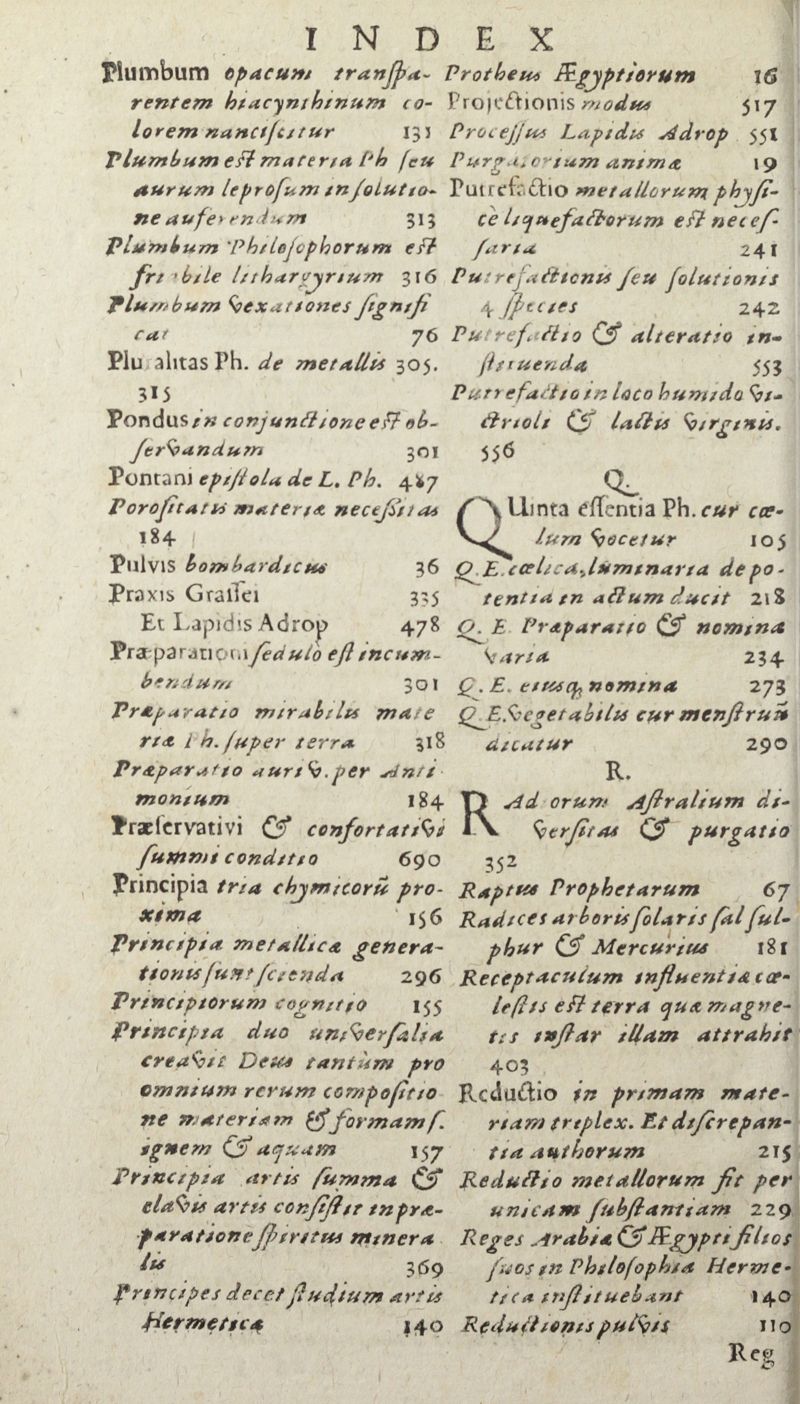 INDEX
Plumbum opacum tranſpa-
rentem hiacynthinum co-
lorem nanciſcitur 131
Plumbum eſt materia Ph ſeu
aurum leproſum inſolutio-
ne auferendum 313
Plumbum Philoſophorum eſt
fribile lithargyrium 316
Plumbum vexationes ſignifi
cat 76
Pluralitas Ph. de metallis 305.
315
Pondus in conjunctione eſt ob-
ſervandum 301
Pontani epiſtola de L. Ph. 487
Poroſitatis materiæ neceſſitas
184
Pulvis bombardicus 36
Praxis Graſſei 335
Et Lapidis Adrop 478
Præparationi ſedulò eſt incum-
bendum 301
Præparatio mirabilis mate
riæ Ph. ſuper terra 318
Præparatio auri v. per Anti
monium 184
Præſervativi & confortativi
ſummi conditio 690
Principia tria chymicorũ pro-
xima 156
Principia metallicæ genera-
tionis ſunt ſcienda 296
Principiorum cognitio 155
Principia duo univerſalia
creavit Deus tantùm pro
omnium rerum compoſitio
ne materiam & formam ſ.
ignem & aquam 157
Principia artis ſumma &
clavis artis conſiſtit in præ-
paratione ſpiritus minera
lis 369
Principes decet ſtudium artis
Hermetica 140
Protheus Ægyptiorum 16
Projectionis modus 517
Proceſſus Lapidis Adrop 551
Purgatorium animæ 19
Putrefactio metallorum phyſi-
cè liquefactorum eſt neceſ-
ſaria 241
Putrefactionis ſeu ſolutionis
4 ſpecies 242
Putrefactio & alteratio in-
ſtituenda 553
Putrefactio in loco humido vi-
trioli & lactis virginis.
556
Q.
QUinta eſſentia Ph. cur cœ-
lum vocetur 105
Q. E. cœlica, luminaria de po-
tentia in actum ducit 218
Q. E. Præparatio & nomina
varia 234
Q. E. eiusq; nomina 273
Q. E. vegetabilis cur menſtruũ
dicatur 290
R.
RAd orum Aſtralium di-
verſitas & purgatio
352
Raptus Prophetarum 67
Radices arboris ſolaris ſal ſul-
phur & Mercurius 181
Receptaculum influentiæ cœ-
leſtis eſt terra quæ magne-
tis inſtar illam attrahit
403
Reductio in primam mate-
riam triplex. Et diſcrepan-
tia authorum 215
Reductio metallorum fit per
unicam ſubſtantiam 229
Reges Arabiæ & Ægypti filios
ſuos in Philoſophia Herme-
tica inſtituebant 140
Reductionis pulvis 110
Reg